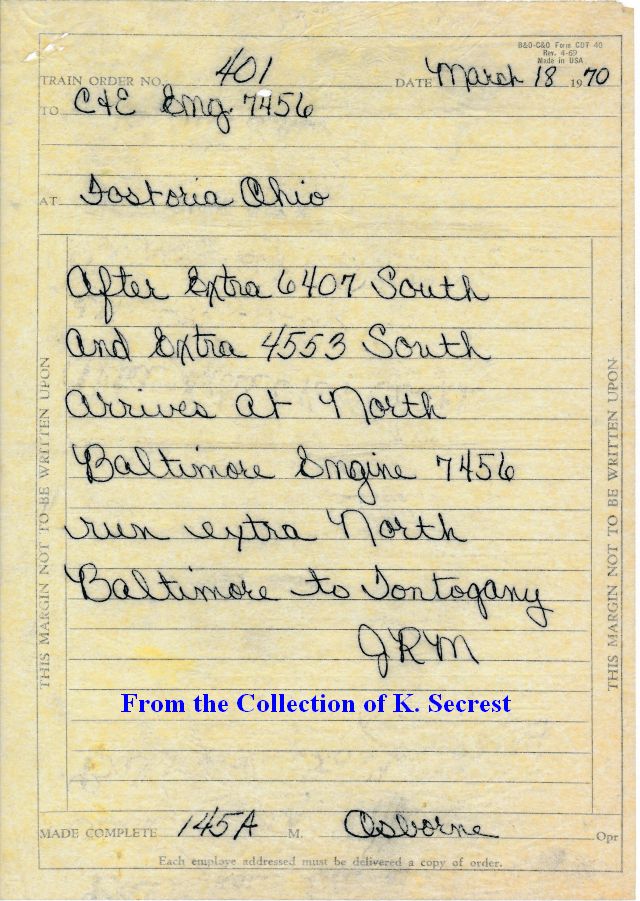 B&O-C&O Form CDT 40
Rev. 4-69
Made in USA
TRAIN ORDER NO. 401 DATE March 18 1970
TO C&E Eng. 7456
AT Fostoria Ohio
After Extra 6407 South
and Extra 4553 South
arrives at North
Baltimore Engine 7456
run extra North
Baltimore to Tontogany
JRM
THIS MARGIN NOT TO BE WRITTEN UPON
THIS MARGIN NOT TO BE WRITTEN UPON
From the Collection of K. Secrest
MADE COMPLETE 145A M. Osborne Opr
Each employe addressed must be delivered a copy of order.